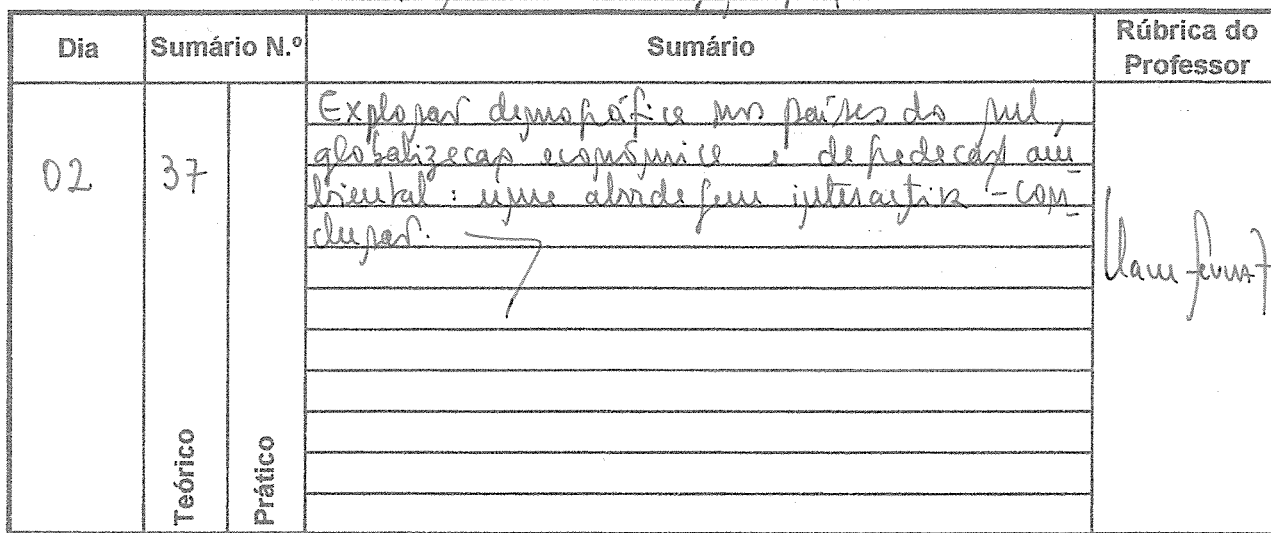 Dia Sumário N.º Sumário Rúbrica do Professor
02 37
Explosão demográfica nos países do sul,
globalização económica e degradação am
biental: uma abordagem interactiva - con-
clusão.
Teórico
Prático